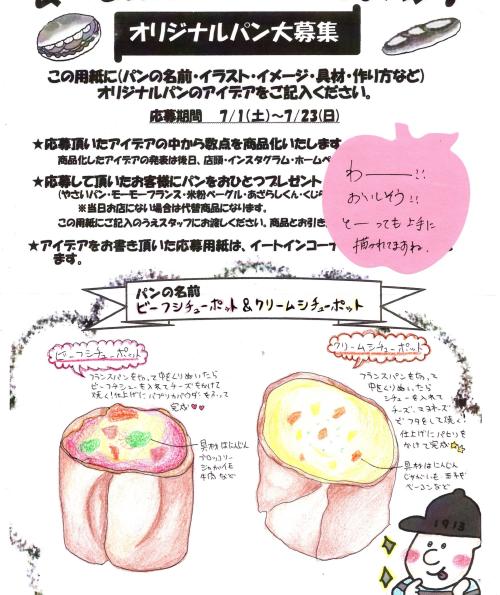 オリジナルパン大募集
この用紙に(パンの名前・イラスト・イメージ・具材・作り方など)
オリジナルパンのアイデアをご記入ください。
応募期間 7/1(土)~7/23(日)
★応募頂いたアイデアの中から数点を商品化いたします
商品化したアイデアの発表は後日、店頭・インスタグラム・ホームペ
★応募して頂いたお客様にパンをおひとつプレゼント
(やさいパン・モーモーフランス・米粉ベーグル・あざらしくん・くじら
※当日お店にない場合は代替商品になります。
この用紙にご記入のうえスタッフにお渡しください。商品とお引き
★アイデアをお書き頂いた応募用紙は、イートインコーナ
ます。
わー!!
おいしそう!!
とーっても上手に
描かれてますね。
パンの名前
ビーフシチューポット&クリームシチューポット
ビーフシチューポット
フランスパンを切って中をくりぬいたら
ビーフシチューを入れてチーズをかけて
焼く!仕上げにパプリカパウダーをふって
完成♥♥
具材はにんじん
ブロッコリー
じゃがいも
牛肉など
クリームシチューポット
フランスパンを切って
中をくりぬいたら
シチューを入れて
チーズ、マヨネーズ
でフタをして焼く!
仕上げにパセリを
かけて完成☆☆
具材はにんじん
じゃがいも 玉ネギ
ベーコンなど
1913